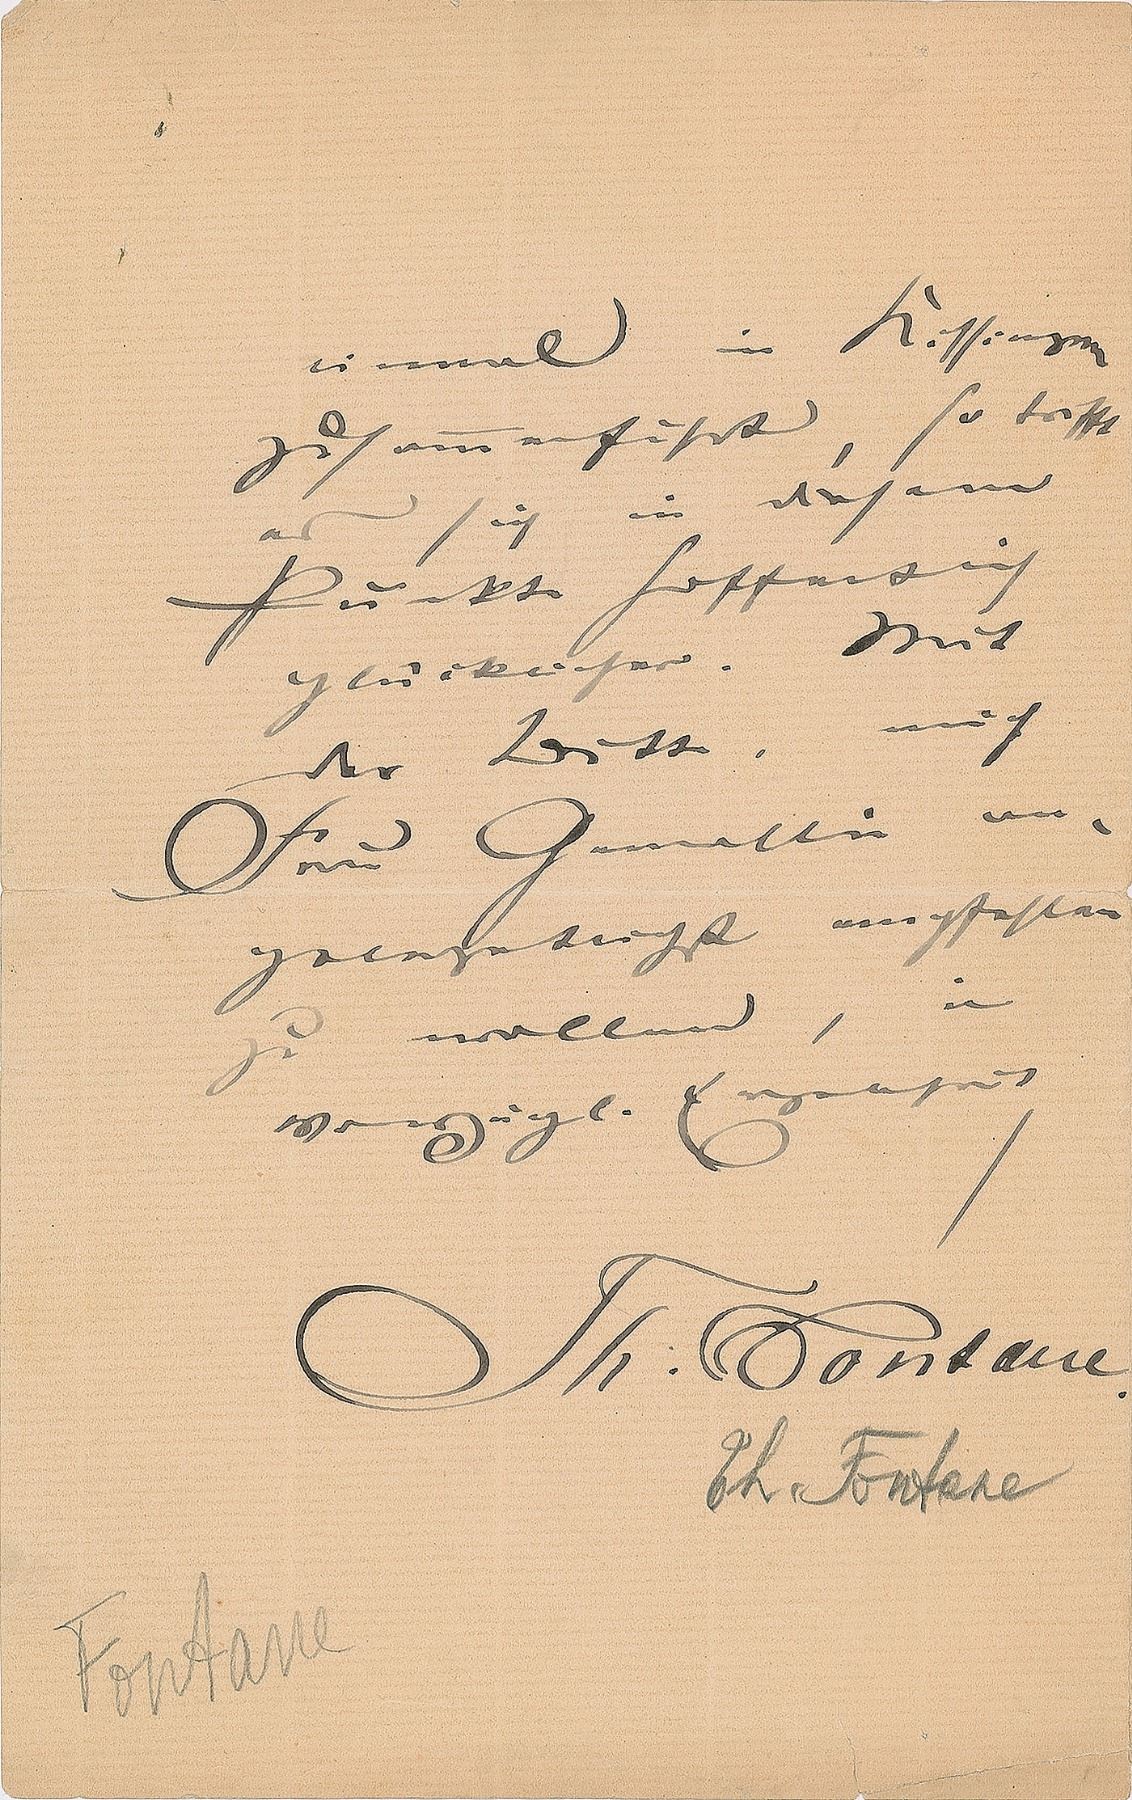 einmal in Kissingen
zusam̅enführt, so trifft
es sich in diesem
Punkte hoffentlich
glücklicher. Mit
der Bitte, mich
Frau Gemahlin an-
gelegentlichst empfehlen
zu wollen, in
vorzügl. Ergebenheit
Th: Fontane.
Th. Fontane
Fontane